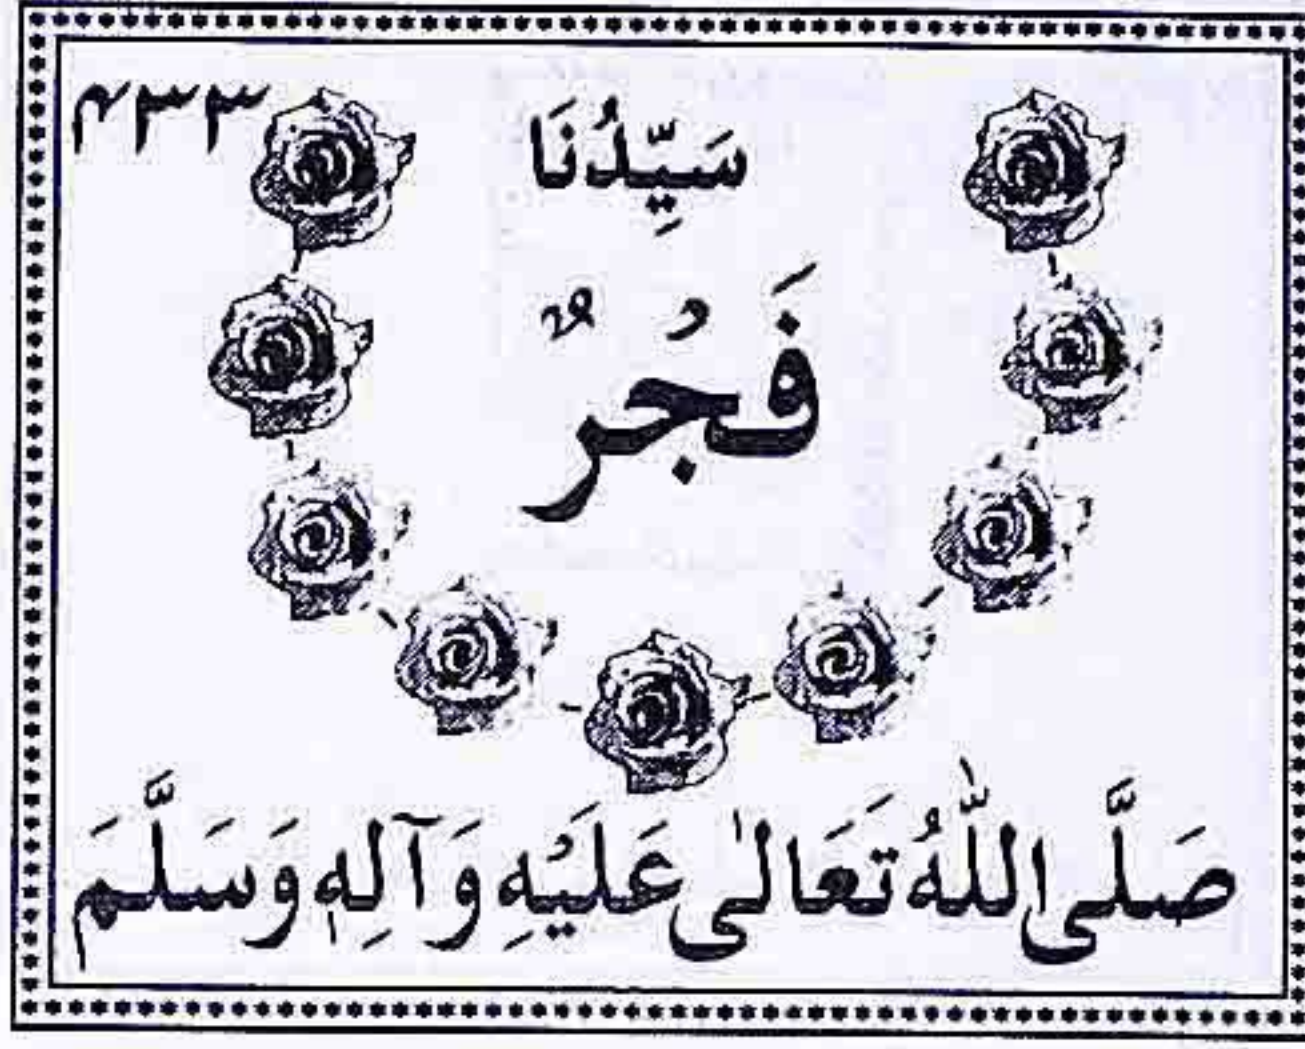 ۴۳۳
سَيِّدُنَا
فَجُرٌ
صَلَّى اللّٰهُ تَعَالٰى عَلَيْهِ وَآلِهٖ وَسَلَّمَ